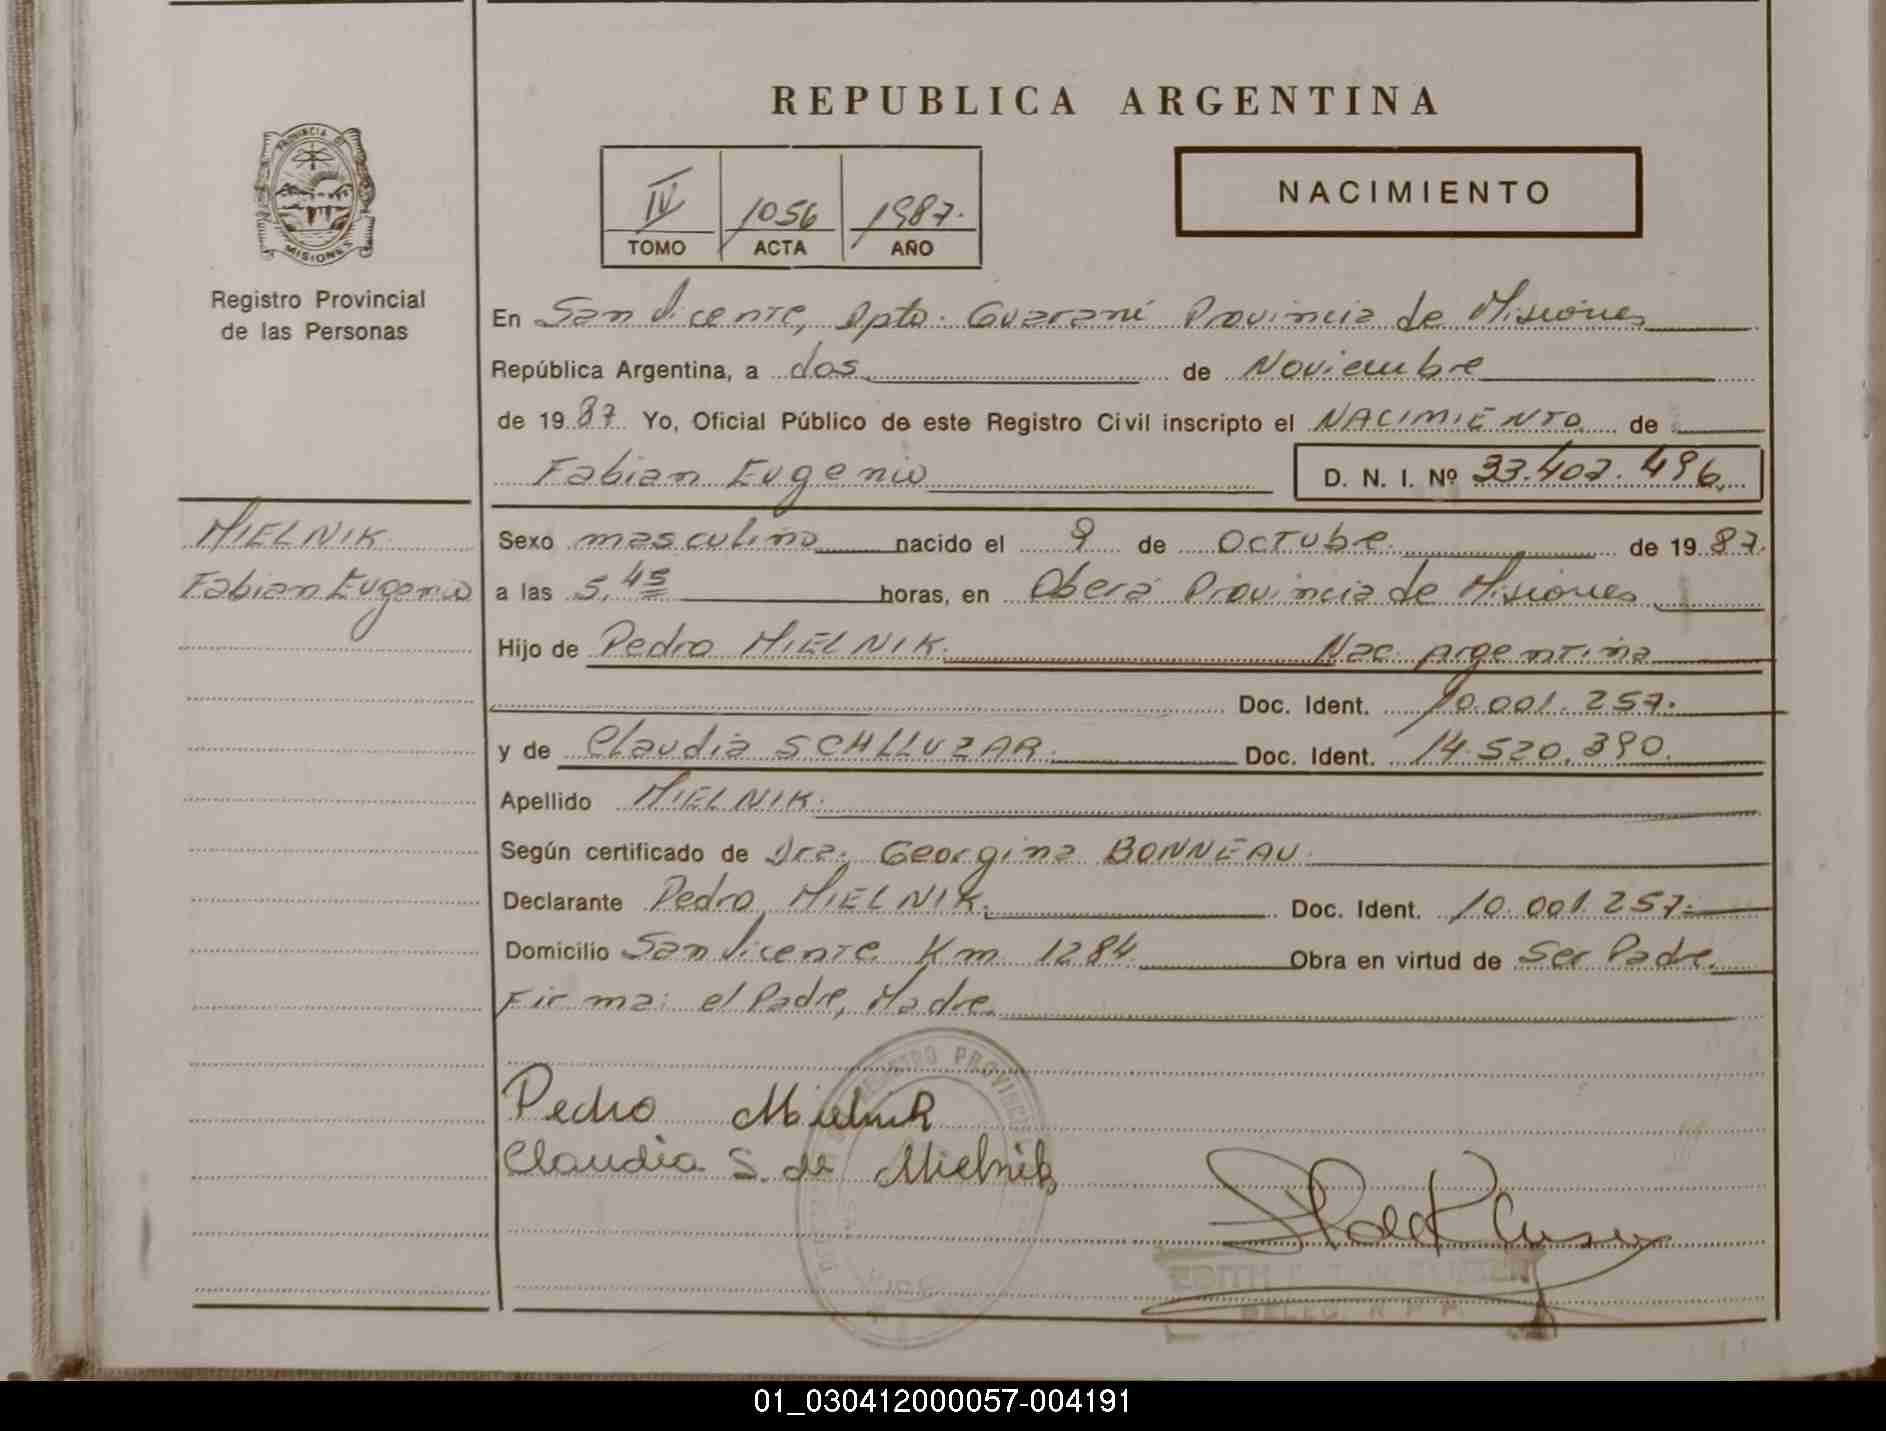 REPUBLICA ARGENTINA
PROVINCIA DE
MISIONES
Registro Provincial
de las Personas
IV 1056 1987.
TOMO ACTA AÑO
NACIMIENTO
En San Vicente, Dpto. Guaraní Provincia de Misiones
República Argentina, a dos de Noviembre
de 1987 Yo, Oficial Público de este Registro Civil inscripto el NACIMIENTO de
Fabian Eugenio D. N. I. Nº 33.407.496
MIELNIK
Fabian Eugenio
Sexo masculino nacido el 9 de Octubre de 1987.
a las 5,45 horas, en Oberá Provincia de Misiones
Hijo de Pedro MIELNIK. Nac. Argentina
Doc. Ident. 10.001.257.
y de Claudia SCHLLUZAR. Doc. Ident. 14.520.390.
Apellido MIELNIK.
Según certificado de Dra. Georgina BONNEAU.
Declarante Pedro MIELNIK. Doc. Ident. 10.001.257.
Domicilio San Vicente Km 1284 Obra en virtud de Ser Padre.
Firma: el Padre, Madre.
Pedro Mielnik
Claudia S. de Mielnik
REGISTRO PROVINCIAL
EDITH
DELEG. R. P. P.
01_030412000057-004191